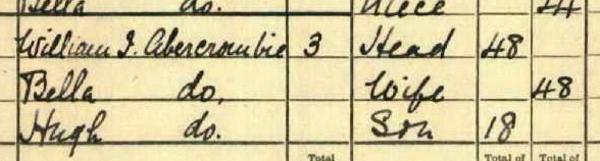 Bella do. Niece 44
William J. Abercrombie 3 Head 48
Bella do. Wife 48
Hugh do. Son 18
Total Total of Total of